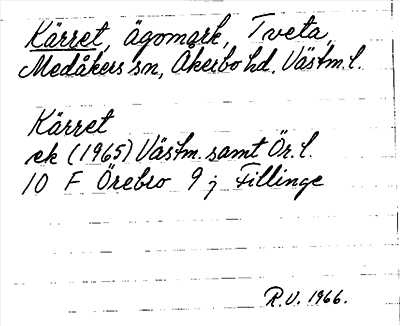 Kärret, ägomark, Tveta,
Medåkers sn, Åkerbo hd. Västm. l.
Kärret
ek (1965) Västm. samt Ör. l.
10 F Örebro 9 j Fillinge
R.V. 1966.